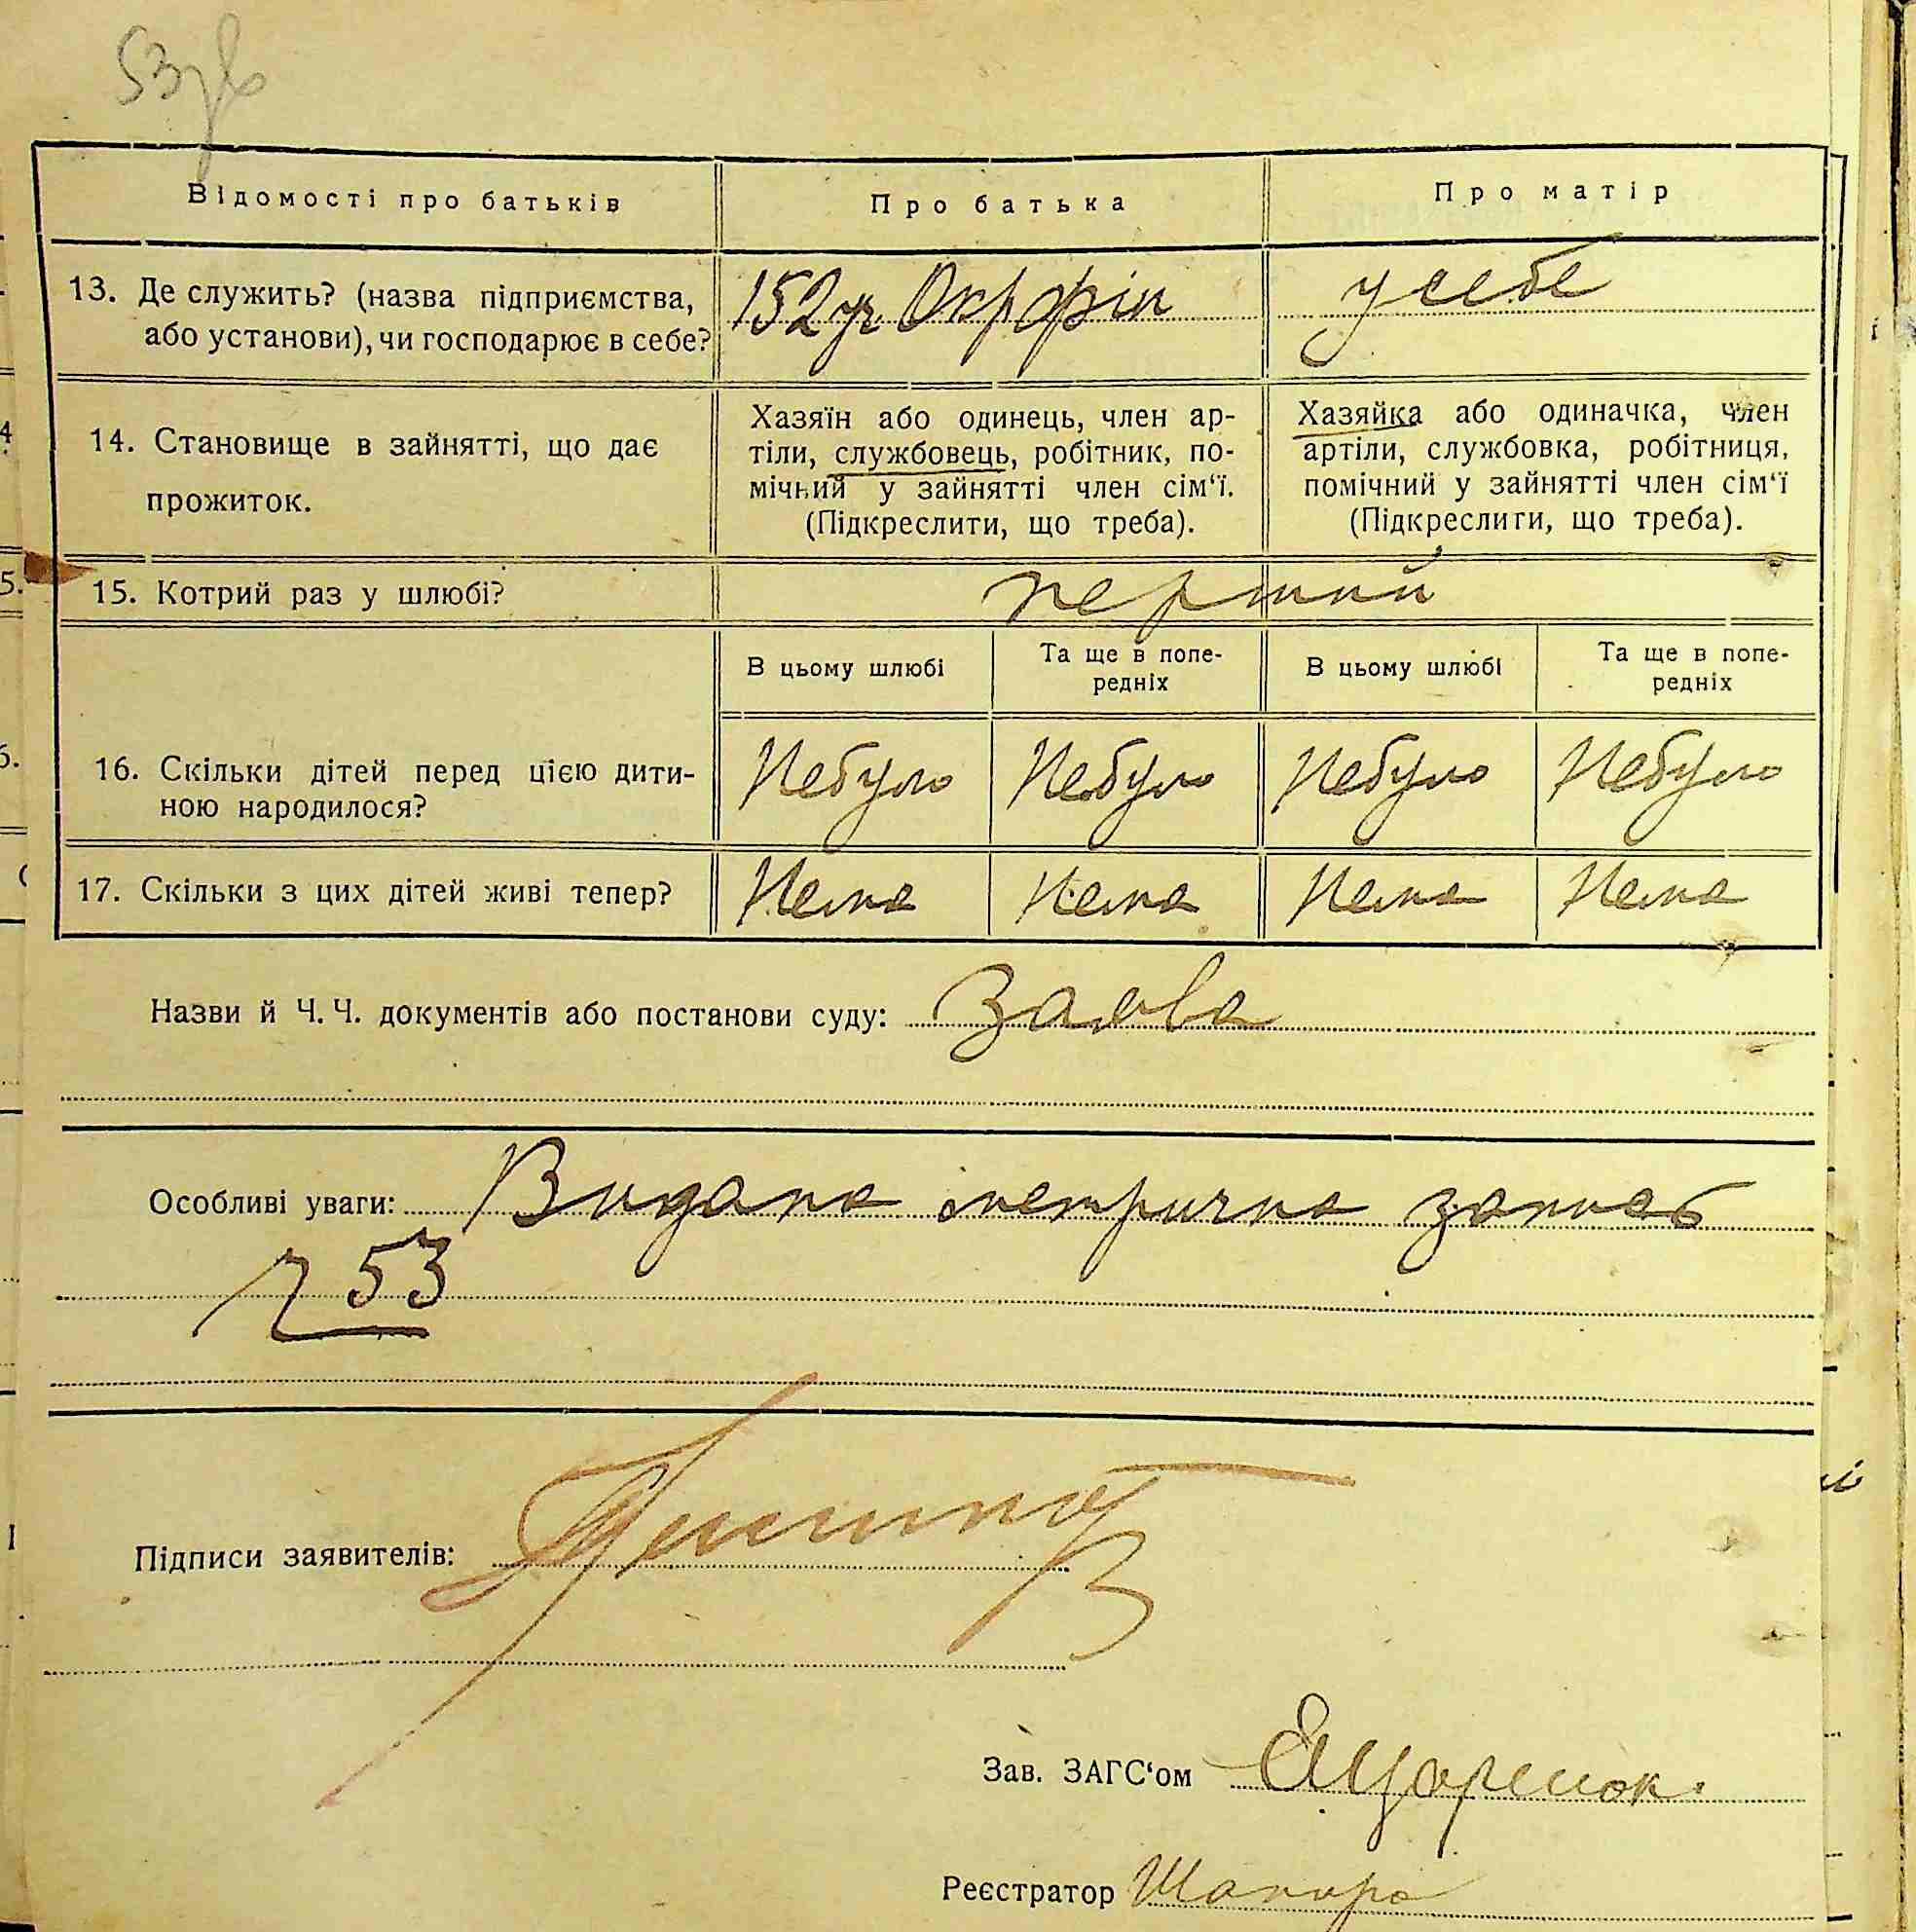 53 зв
Відомості про батьків
Про батька
Про матір
13. Де служить? (назва підприємства,
або установи), чи господарює в себе?
152 уч. Окр фін
у себе
14. Становище в зайнятті, що дає
прожиток.
Хазяїн або одинець, член ар-
тіли, службовець, робітник, по-
мічний у зайнятті член сім‘ї.
(Підкреслити, що треба).
Хазяйка або одиначка, член
артіли, службовка, робітниця,
помічний у зайнятті член сім‘ї
(Підкреслити, що треба).
15. Котрий раз у шлюбі?
перший
В цьому шлюбі
Та ще в попе-
редніх
В цьому шлюбі
Та ще в попе-
редніх
16. Скільки дітей перед цією дити-
ною народилося?
Небуло
Небуло
Небуло
Небуло
17. Скільки з цих дітей живі тепер?
Нема
Нема
Нема
Нема
Назви й Ч. Ч. документів або постанови суду: Заява
Особливі уваги: Видана метрична запись
ч 53
Підписи заявителів:
Зав. ЗАГС‘ом
Реєстратор Шапиро